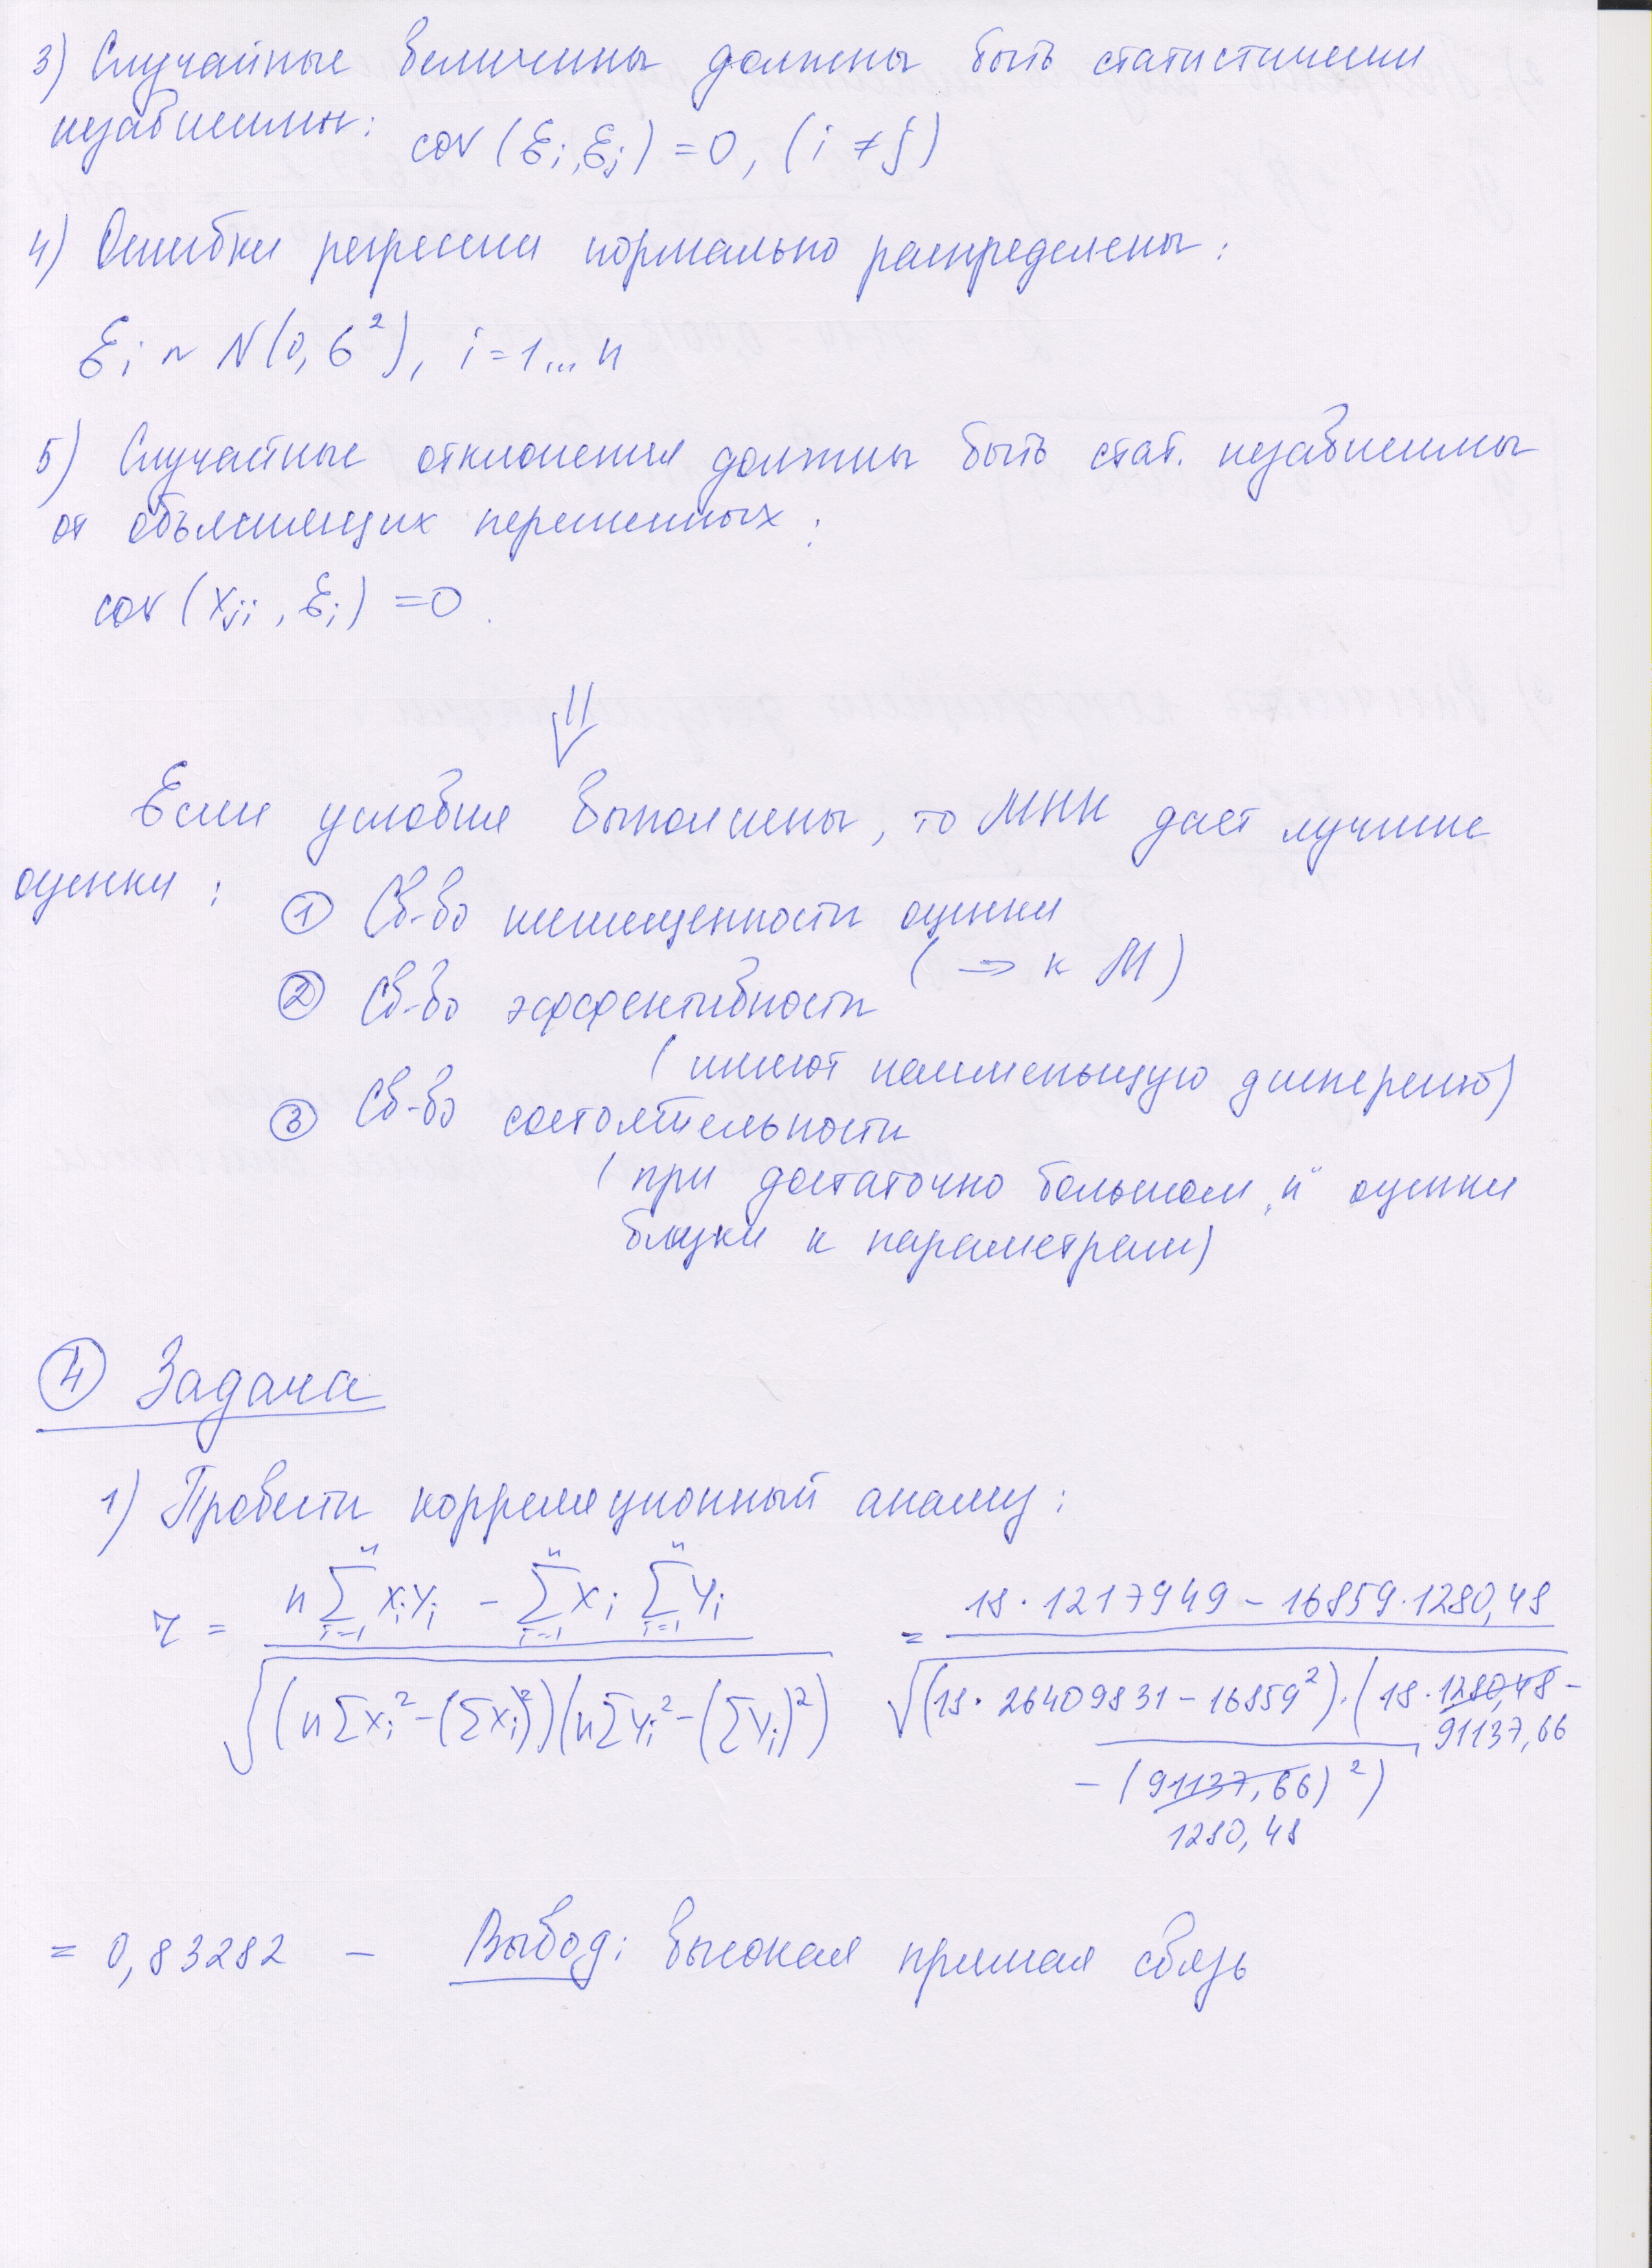 3) Случайные величины должны быть статистически
независимы: cov (ε_i, ε_j) = 0, (i ≠ j)
4) Ошибки регрессии нормально распределены:
ε_i ~ N(0, б²), i = 1...n
5) Случайные отклонения должны быть стат. независимы
от объясняющих переменных:
cov (x_ji, ε_i) = 0.
⇓
Если условия выполнены, то МНК дает лучшие
оценки:
① Св-во несмещенности оценки
(⇒ к M)
② Св-во эффективности
(имеют наименьшую дисперсию)
③ Св-во состоятельности
(при достаточно большом „n" оценки
близки к параметрам)
④ Задача
1) Провести корреляционный анализ:
r = (n Σ_{i=1}^n x_i y_i − Σ_{i=1}^n x_i Σ_{i=1}^n y_i) / √((n Σx_i² − (Σx_i)²)(n Σy_i² − (Σy_i)²)) = (18 · 1217949 − 16859 · 1280,48) / √((18 · 26409831 − 16859²) · (18 · 1280,48 −
91137,66
− (91137,66)²)
1280,48
= 0,83282 – Вывод: высокая прямая связь